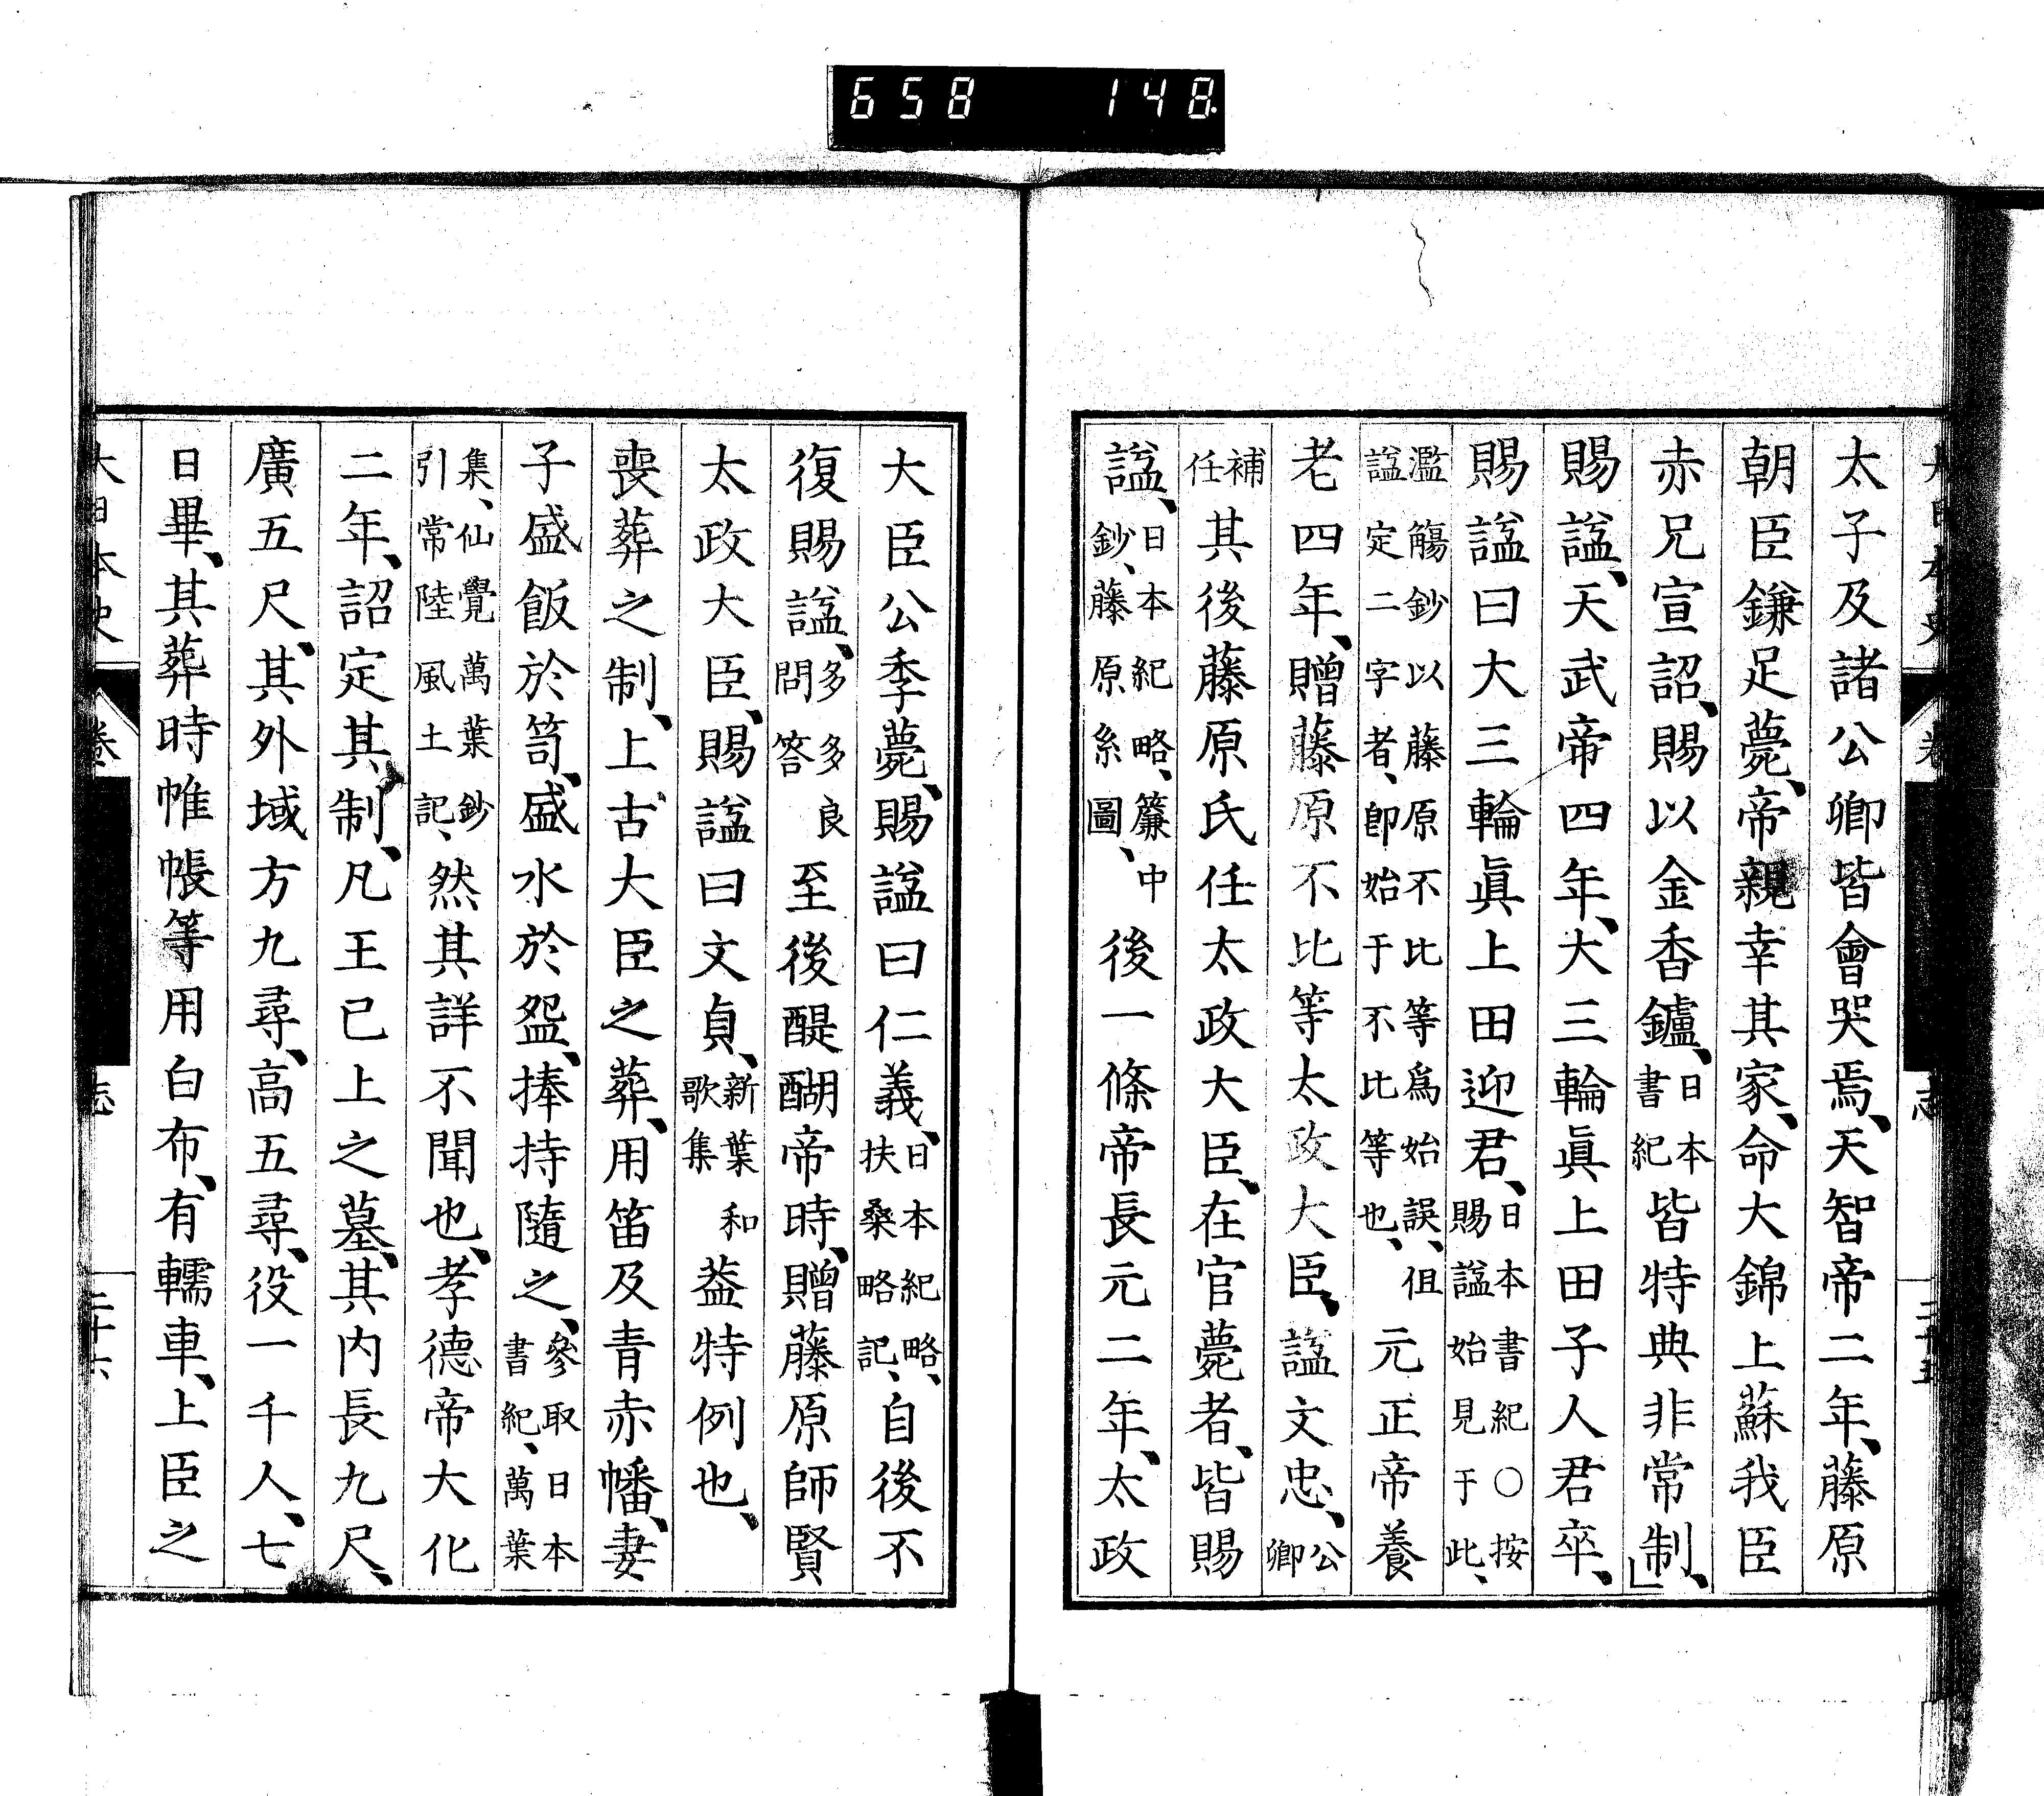 658 148
太子及諸公卿皆會哭焉、天智帝二年、藤原
朝臣鎌足薨、帝親幸其家、命大錦上蘇我臣
赤兄宣詔、賜以金香鑪、日本書紀皆特典非常制、」
賜諡、天武帝四年、大三輪眞上田子人君卒、
賜諡曰大三輪眞上田迎君、日本書紀〇按賜諡始見于此、
濫觴鈔以藤原不比等爲始誤、但諡定二字者、卽始于不比等也、元正帝養
老四年、贈藤原不比等太政大臣、諡文忠、公卿
補任其後藤原氏任太政大臣、在官薨者、皆賜
諡、日本紀略、簾中鈔、藤原系圖、後一條帝長元二年、太政
大臣公季薨、賜諡曰仁義、日本紀略、扶桑略記、自後不
復賜諡、多多良問答至後醍醐帝時、贈藤原師賢
太政大臣、賜諡曰文貞、新葉和歌集葢特例也、
喪葬之制、上古大臣之葬、用笛及青赤幡、妻
子盛飯於笥、盛水於盌、捧持隨之、參取日本書紀、萬葉
集、仙覺萬葉鈔引常陸風土記、然其詳不聞也、孝德帝大化
二年、詔定其制、凡王已上之墓、其内長九尺、
廣五尺、其外域方九尋、高五尋、役一千人、七
日畢、其葬時帷帳等用白布、有轜車、上臣之
大日本史 卷 志 二十六